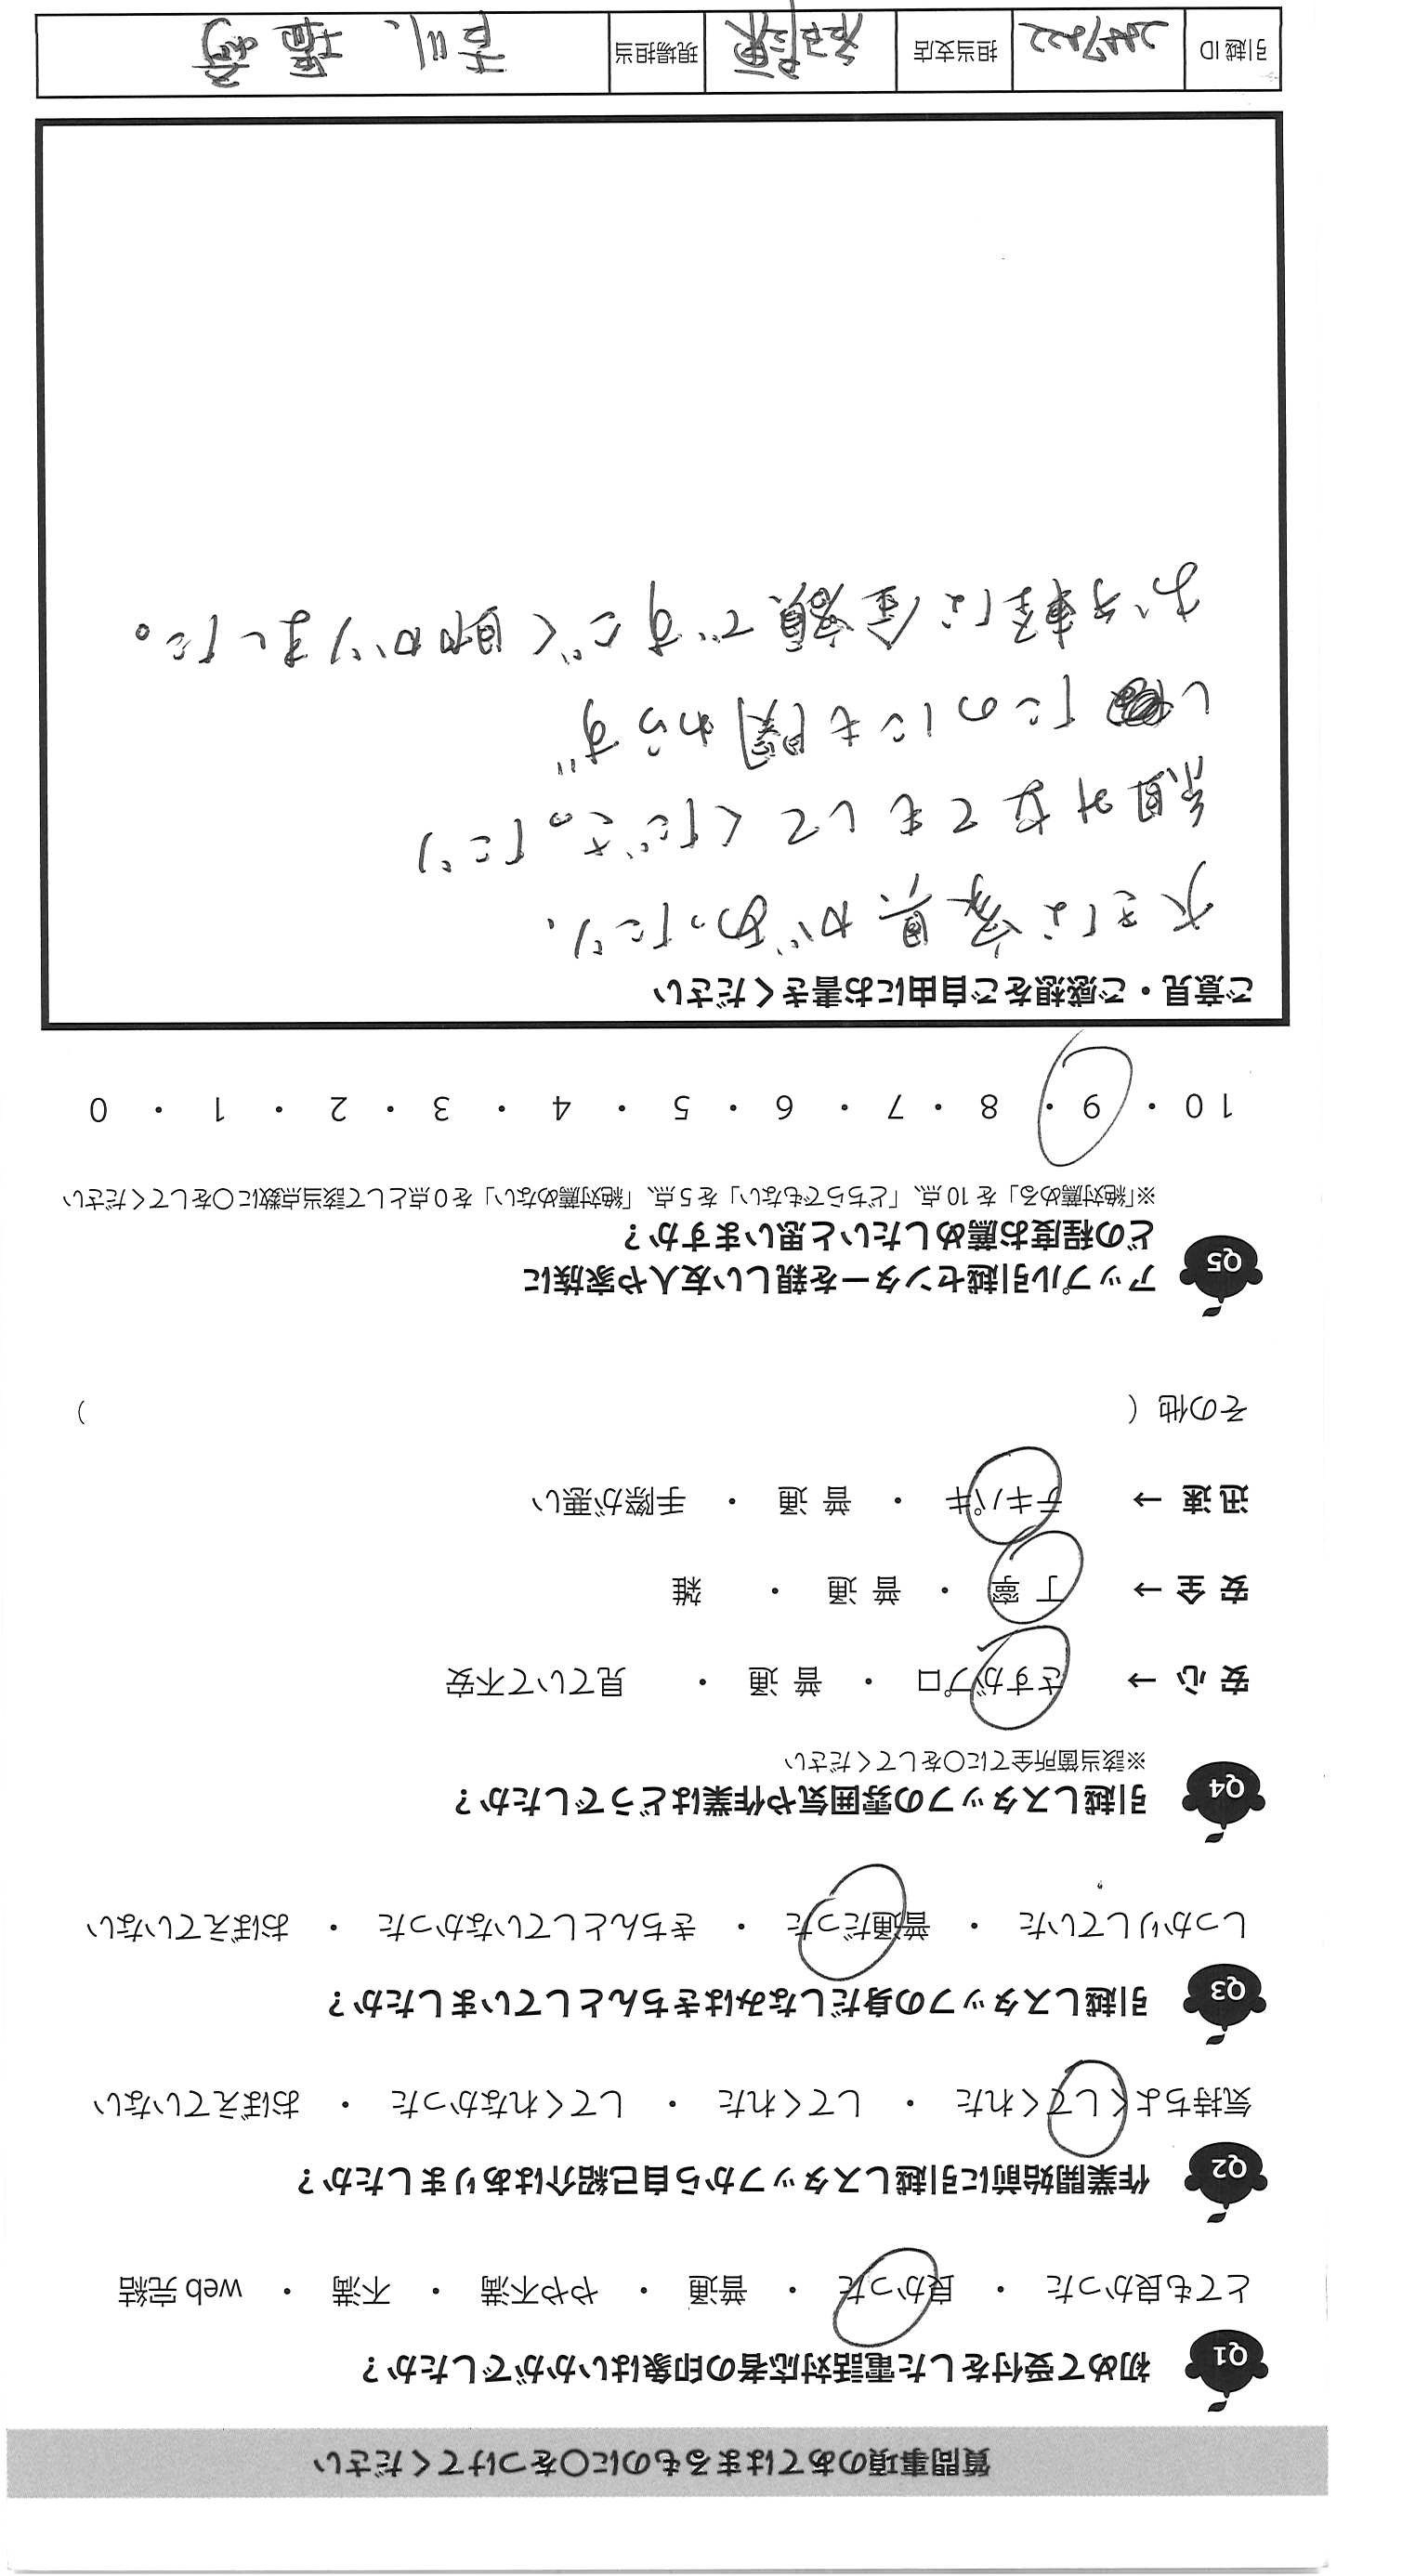 質問事項のあてはまるものに〇をつけてください
Q1 初めて受付をした電話対応者の印象はいかがでしたか？
とても良かった ・ 良かった ・ 普通 ・ やや不満 ・ 不満 ・ web 完結
Q2 作業開始前に引越しスタッフから自己紹介はありましたか？
気持ちよくしてくれた ・ してくれた ・ してくれなかった ・ おぼえていない
Q3 引越しスタッフの身だしなみはきちんとしていましたか？
しっかりしていた ・ 普通だった ・ きちんとしていなかった ・ おぼえていない
Q4 引越しスタッフの雰囲気や作業はどうでしたか？
※該当箇所全てに〇をしてください
安心 → さすがプロ ・ 普通 ・ 見ていて不安
安全 → 丁寧 ・ 普通 ・ 雑
迅速 → テキパキ ・ 普通 ・ 手際が悪い
その他（ ）
Q5 アップル引越センターを親しい友人や家族に
どの程度お薦めしたいと思いますか？
※「絶対薦める」を 10 点、「どちらでもない」を 5 点、「絶対薦めない」を 0 点として該当点数に〇をしてください
10 ・ 9 ・ 8 ・ 7 ・ 6 ・ 5 ・ 4 ・ 3 ・ 2 ・ 1 ・ 0
ご意見・ご感想をご自由にお書きください
大きな家具があったり、
組み立てもしてくださったり
したのにも関わらず
お手軽な金額ですごく助かりました。
引越 ID 担当支店 現場担当 吉川、